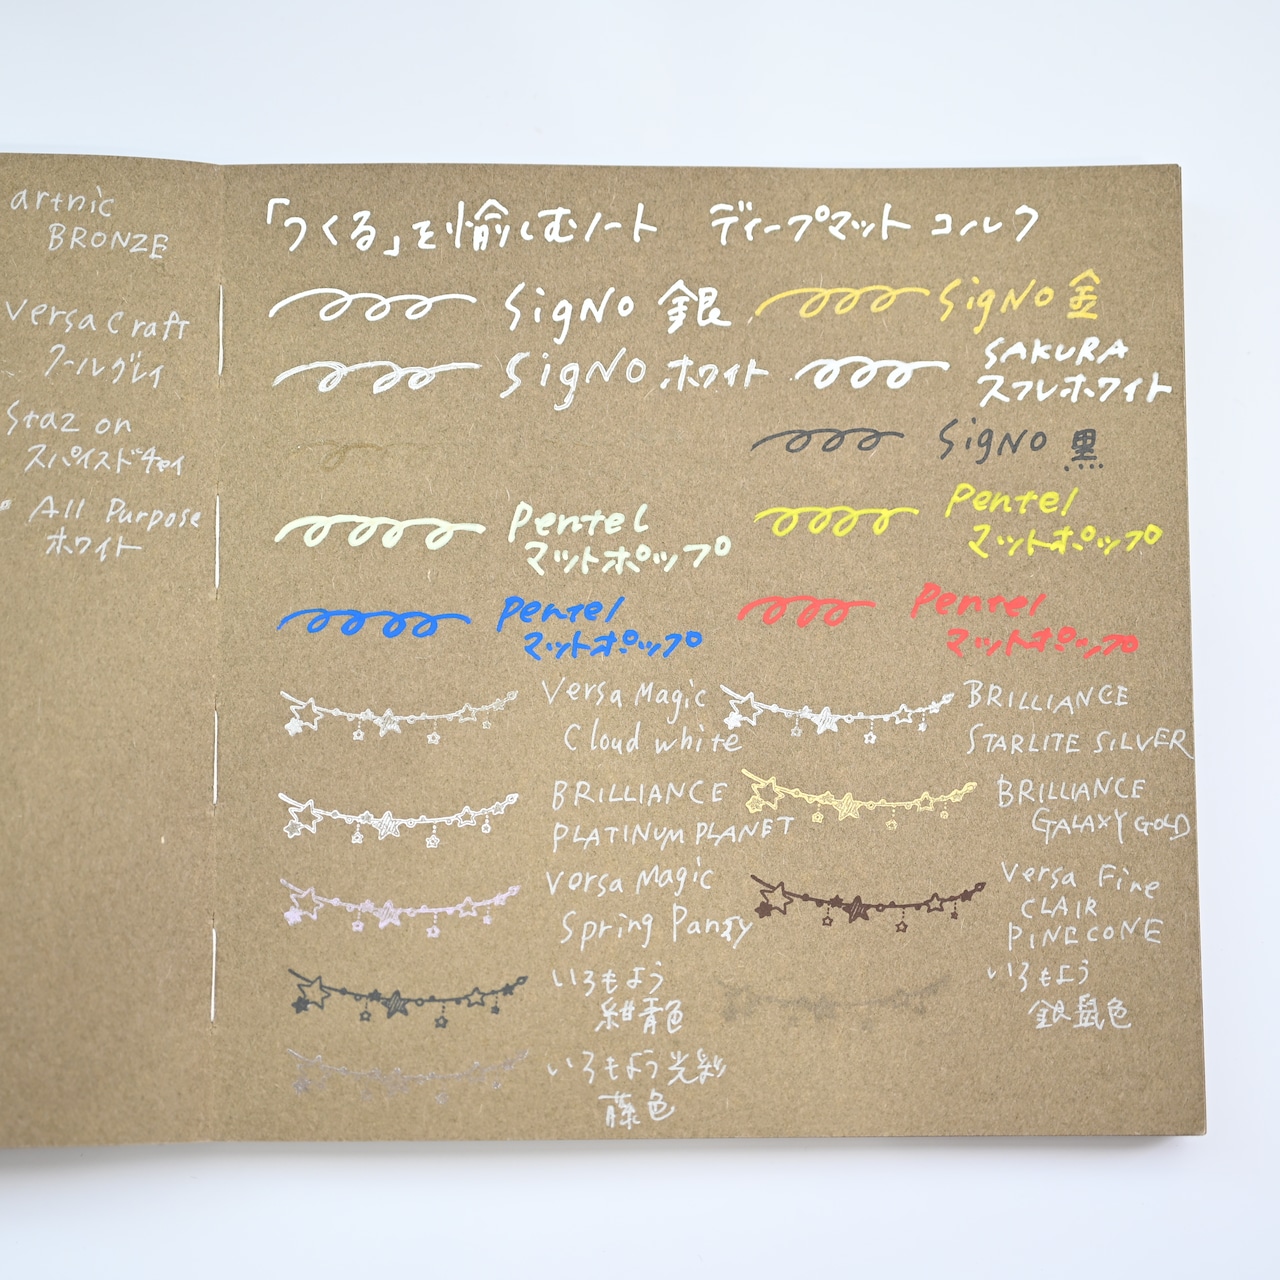 artnic
BRONZE
Versa Craft
クールグレイ
Staz on
スパイスドチャイ
All Purpose
ホワイト
「つくる」を愉しむノート ディープマット コルク
SigNo 銀
SigNo 金
SigNo ホワイト
SAKURA
スフレホワイト
SigNo 黒
Pentel
マットホップ
Pentel
マットホップ
Pentel
マットホップ
Pentel
マットホップ
Versa Magic
Cloud white
BRILLIANCE
STARLITE SILVER
BRILLIANCE
PLATINUM PLANET
BRILLIANCE
GALAXY GOLD
Versa Magic
Spring Panzy
Versa Fine
CLAIR
PINECONE
いろもよう
紺青色
いろもよう
銀鼠色
いろもよう光彩
藤色